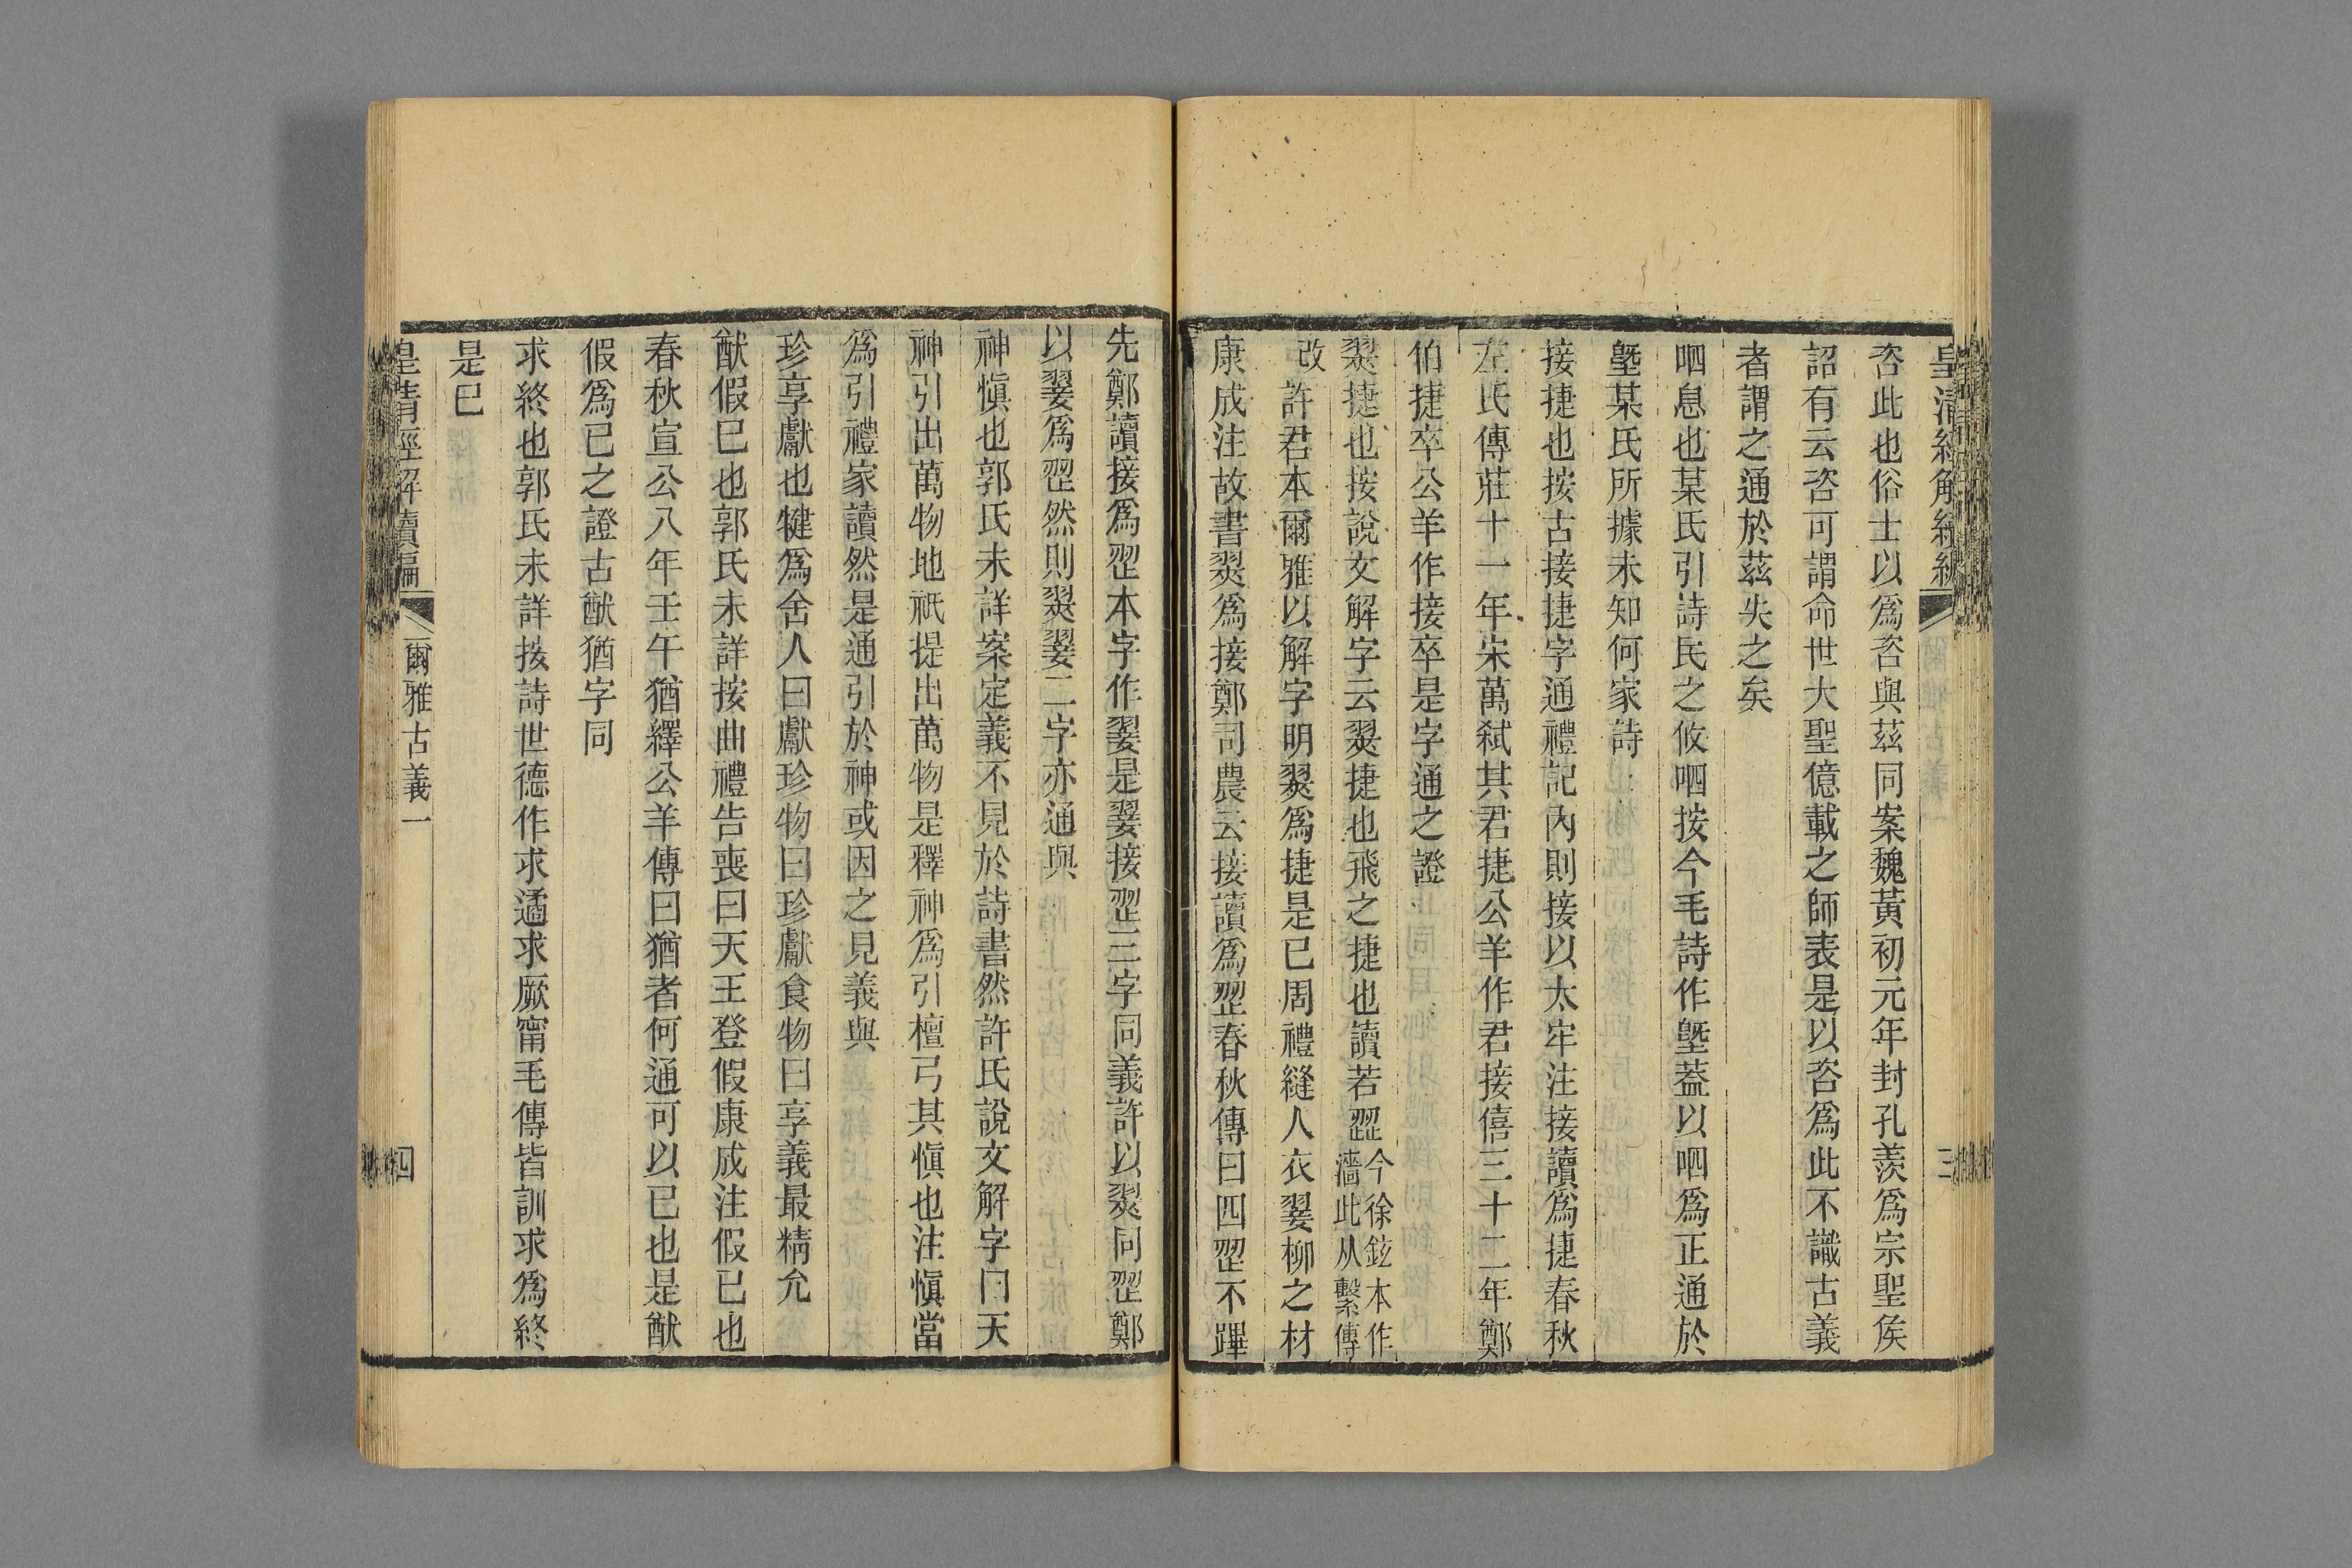 皇清經解續編
三
咨此也俗士以爲咨與茲同案魏黃初元年封孔羨爲宗聖矦
詔有云咨可謂命世大聖億載之師表是以咨爲此不識古義
者謂之通於茲失之矣
呬息也某氏引詩民之攸呬按今毛詩作墍葢以呬爲正通於
墍某氏所據未知何家詩
接捷也按古接捷字通禮記內則接以太牢注接讀爲捷春秋
左氏傳莊十一年宋萬弒其君捷公羊作君接僖三十二年鄭
伯捷卒公羊作接卒是字通之證
翜捷也按說文解字云翜捷也飛之捷也讀若歰今徐鉉本作
濇此从繫傳
改許君本爾雅以解字明翜爲捷是已周禮縫人衣翣柳之材
康成注故書翜爲接鄭司農云接讀爲歰春秋傳曰四歰不蹕
先鄭讀接爲歰本字作翣是翣接歰三字同義許以翜同歰鄭
以翣爲歰然則翜翣二字亦通與
神愼也郭氏未詳案定義不見於詩書然許氏說文解字曰天
神引出萬物地祇提出萬物是釋神爲引檀弓其愼也注愼當
爲引禮家讀然是通引於神或因之見義與
珍享獻也犍爲舍人曰獻珍物曰珍獻食物曰享義最精允
猷假已也郭氏未詳按曲禮告喪曰天王登假康成注假已也
春秋宣公八年壬午猶繹公羊傳曰猶者何通可以已也是猷
假爲已之證古猷猶字同
求終也郭氏未詳按詩世德作求遹求厥甯毛傳皆訓求爲終
是已
皇清經解續編
爾雅古義一
四